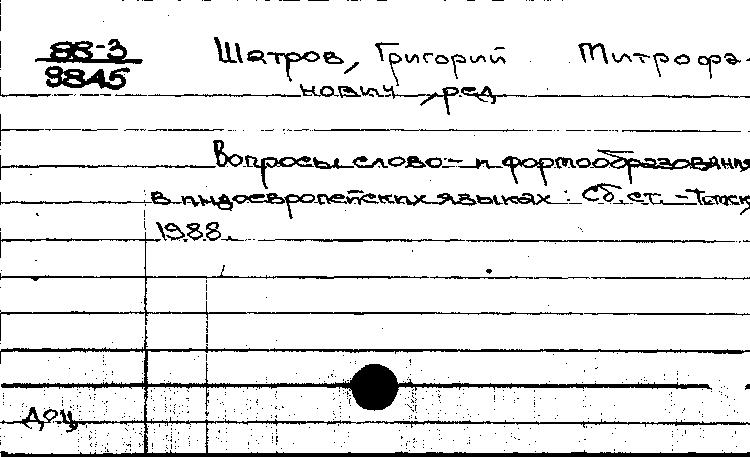 88-3 Шатров, Григорий Митрофа-
9845 нович, ред.
Вопросы слово- и формообразования
в индоевропейских языках : Сб. ст. - Томск,
1988.
доц.